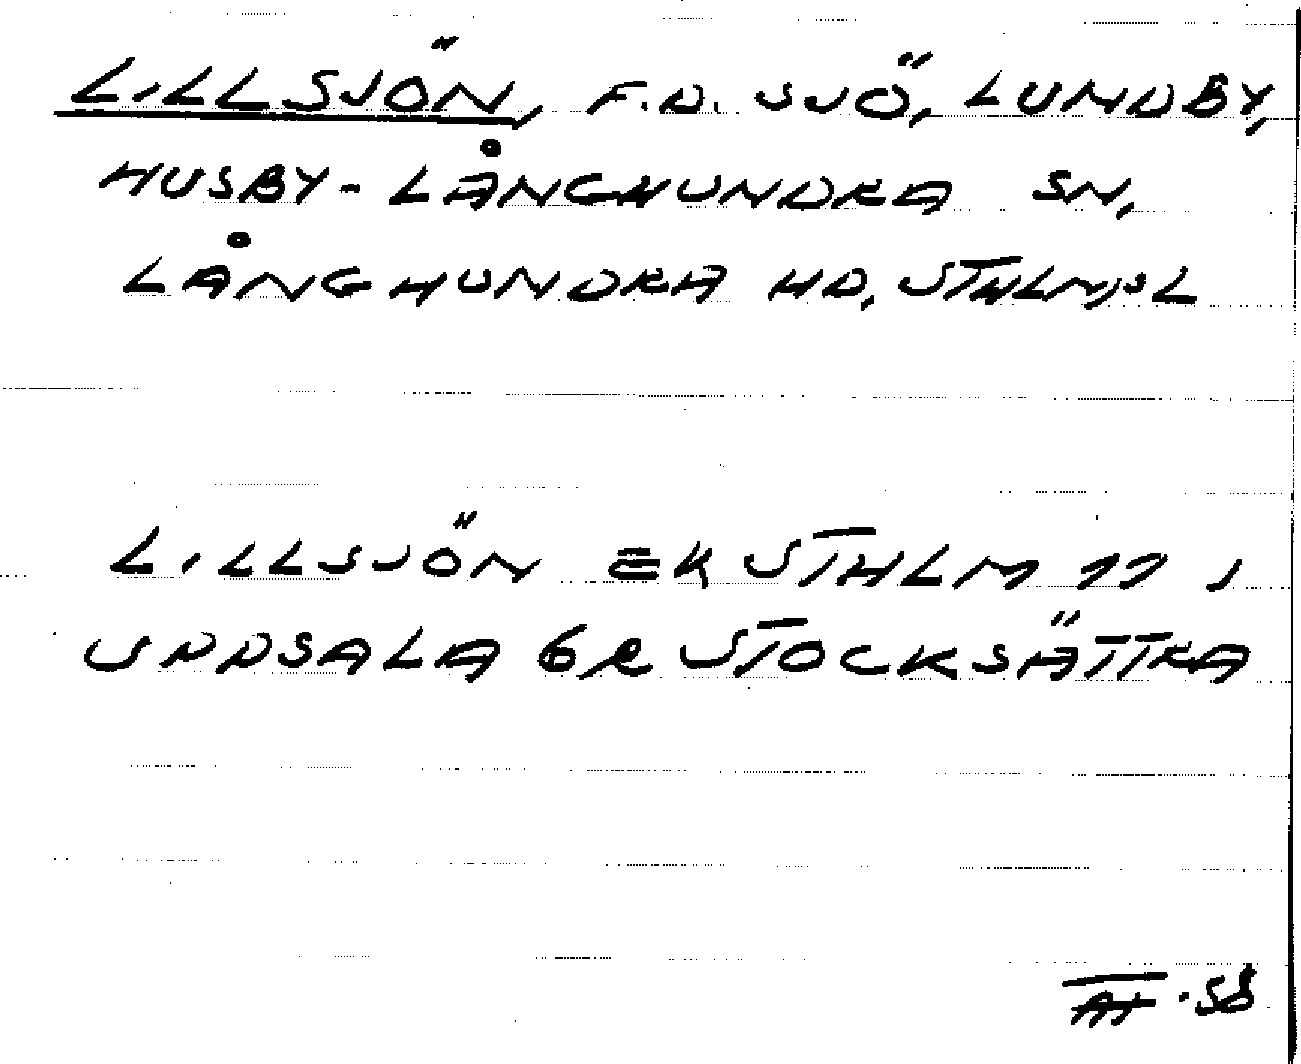 LILLSJÖN, F.D. SJÖ, LUNDBY,
HUSBY-LÅNGHUNDRA SN,
LÅNGHUNDRA HD, STHLMS L
LILLSJÖN EK STHLM 77 I
UPPSALA 6R STOCKSÄTTRA